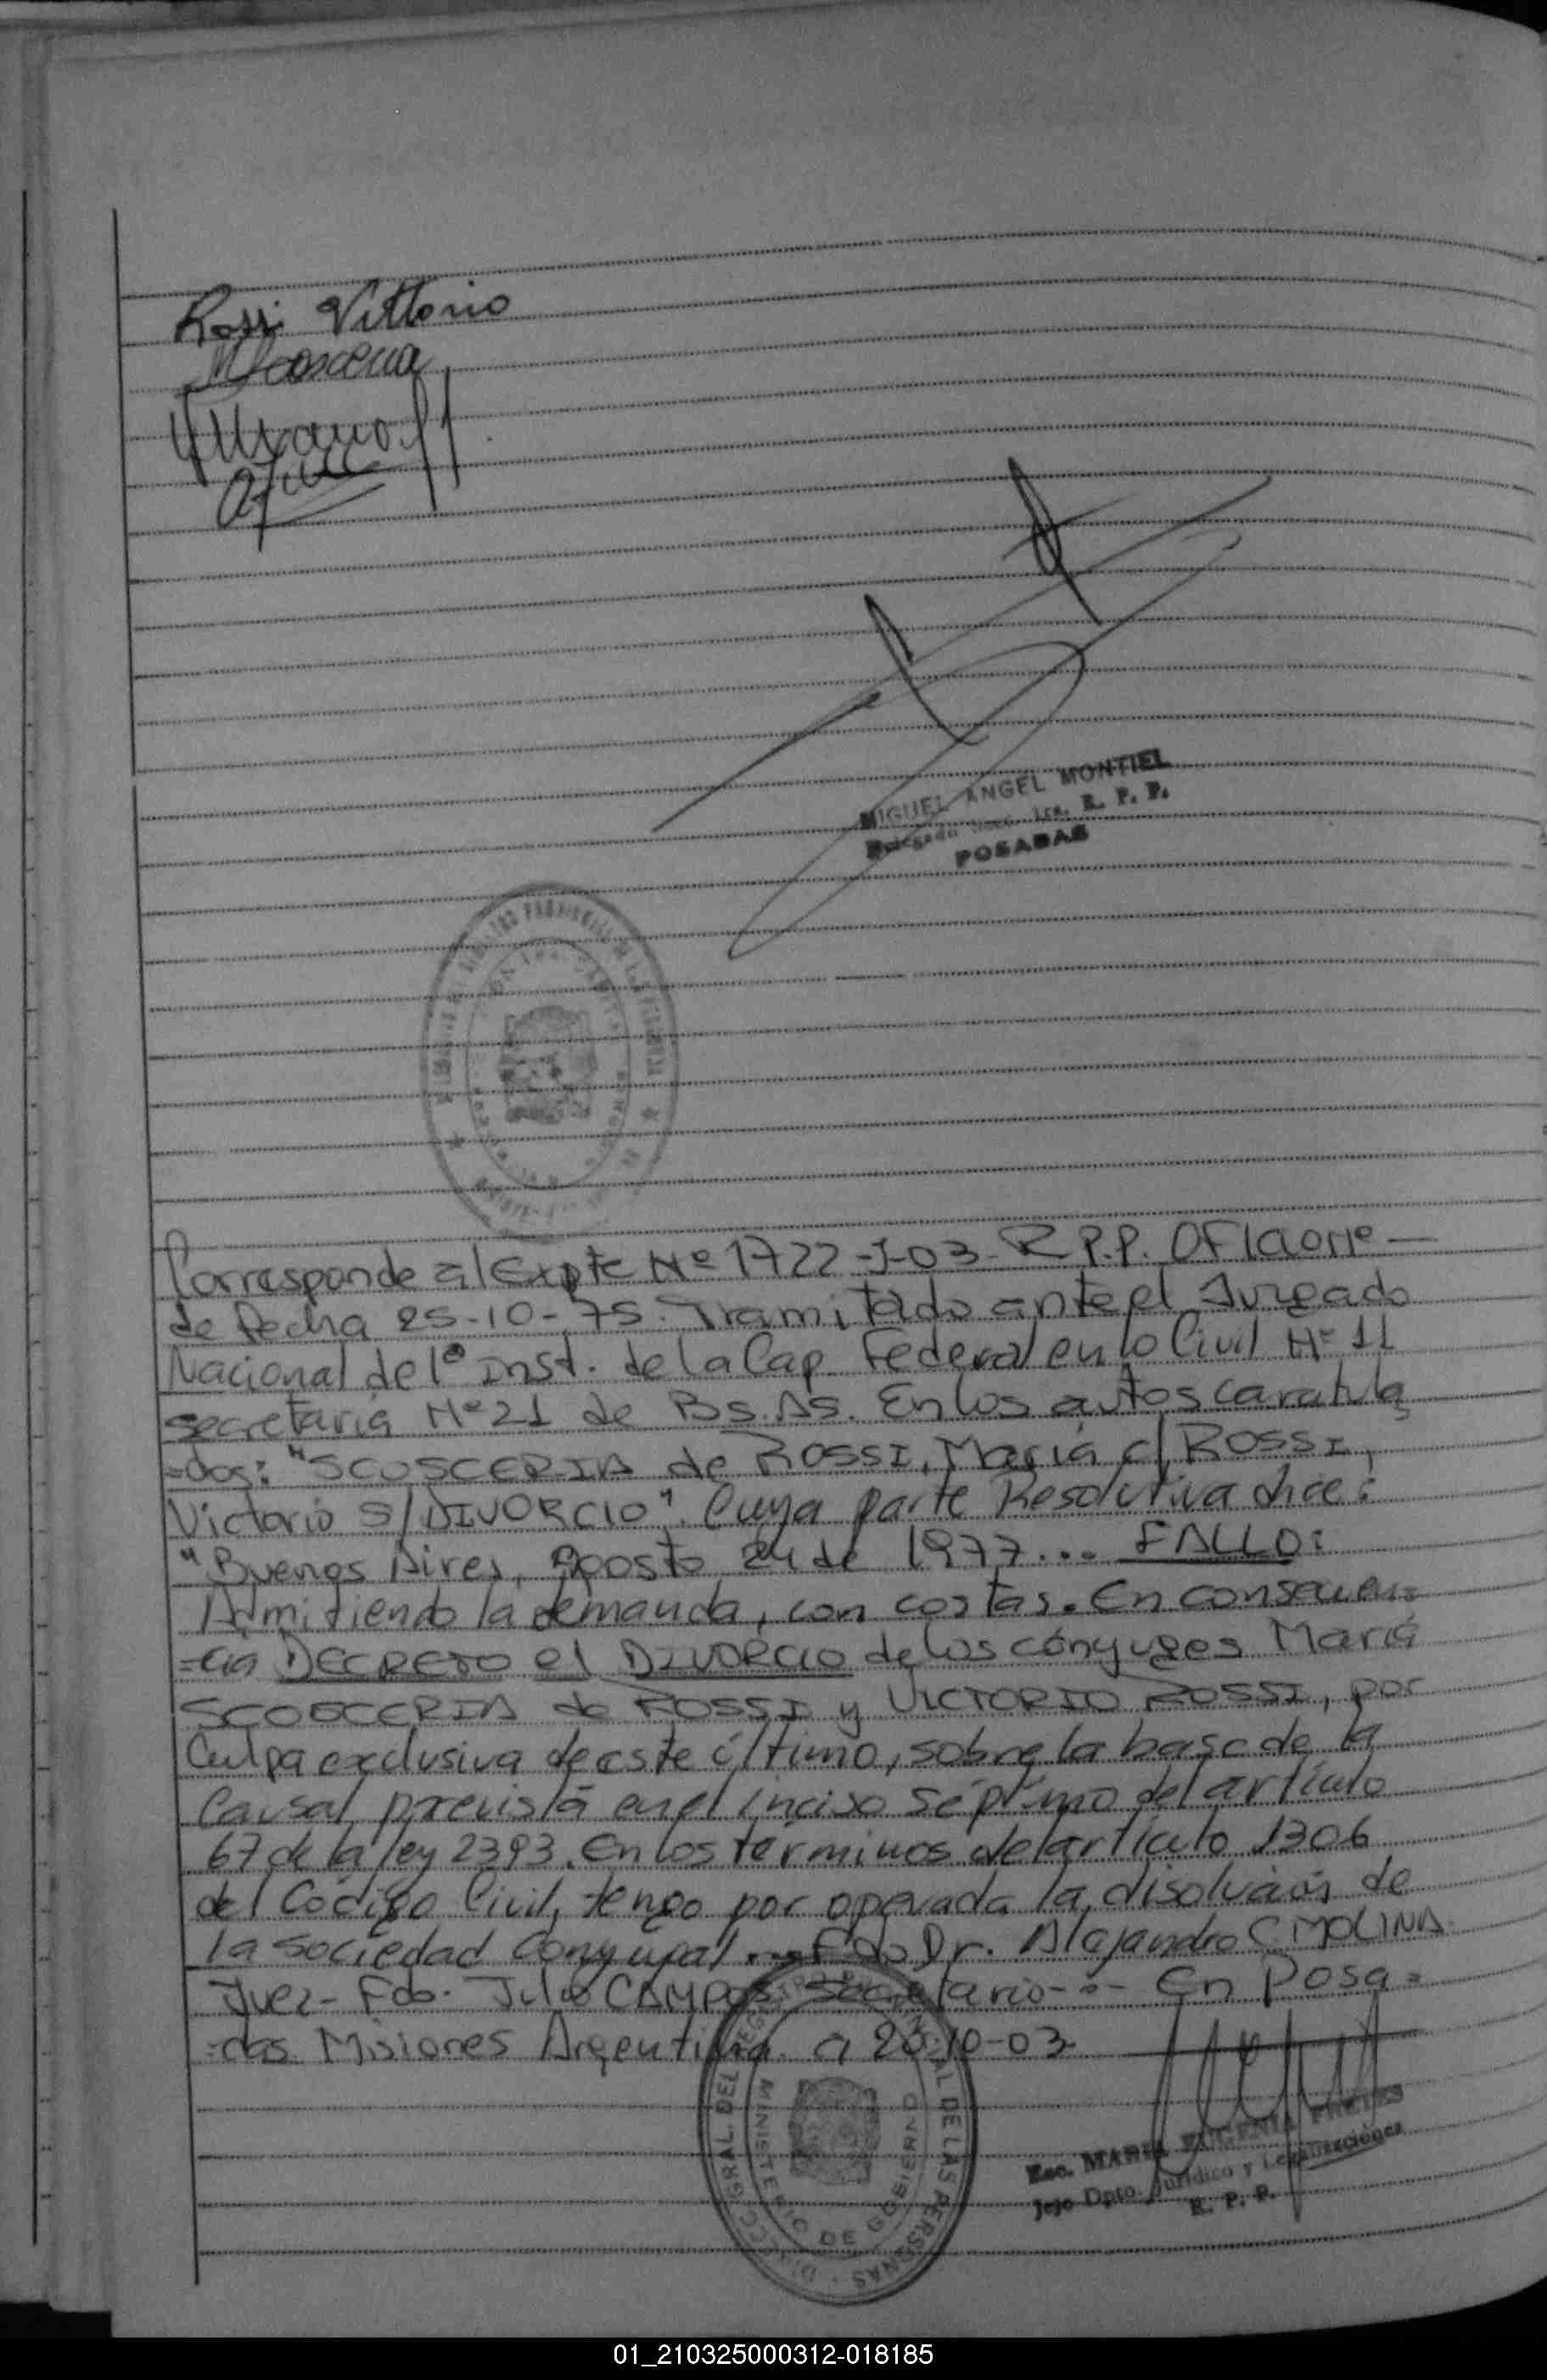 Rossi Vittorio
MIGUEL ANGEL MONTIEL
Delegado Secc. 1ra. R. P. P.
POSADAS
Corresponde al Expte Nº 1722-J-03- R.P.P. OFICIO Nº —
de fecha 25-10-75. Tramitado ante el Juzgado
Nacional de 1º Inst. de la Cap Federal en lo Civil Nº 11
secretaria Nº 21 de Bs.As. En los autos caratula
=dos: "SCUSCERIA de ROSSI, Maria c/ ROSSI,
Victorio S/ DIVORCIO". Cuya parte Resolutiva dice:
"Buenos Aires, Agosto 24 de 1977... FALLO:
Admitiendo la demanda, con costas. En consecuen=
=cia DECRETO el DIVORCIO de los cónyuges Maria
SCOSCERIA de ROSSI y VICTORIO ROSSI, por
Culpa exclusiva de este último, sobre la base de la
Causal prevista en el inciso séptimo del artículo
67 de la ley 2393. En los términos del artículo 1306
del Código Civil, tengo por operada la disolución de
la sociedad Conyugal. Fdo Dr. Alejandro C. MOLINA
Juez- Fdo. Julio CAMPOS Secretario-.- En Posa=
=das Misiones Argentina a 20-10-03
DE LAS PERSONAS
MINISTERIO DE GOBIERNO
Esc. MARIA EUGENIA
Jefe Dpto. Jurídico y Legalizaciones
R. P. P.
01_210325000312-018185